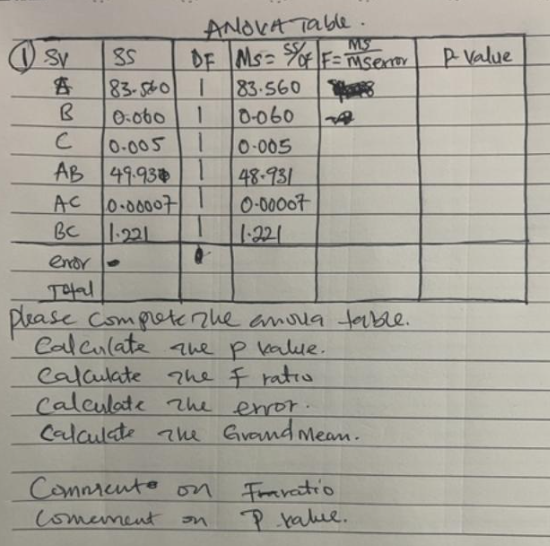 ANOVA Table.
① SV SS DF MS = SS/DF F = MS/MSerror P-Value
A 83.560 1 83.560
B 0.060 1 0.060
C 0.005 1 0.005
AB 49.931 1 48.931
AC 0.00007 1 0.00007
BC 1.221 1 1.221
error -
Total
please complete the anova table.
Calculate the P value.
Calculate the F ratio
Calculate the error.
Calculate the Grand Mean.
Comment on F ratio
Comement on P value.